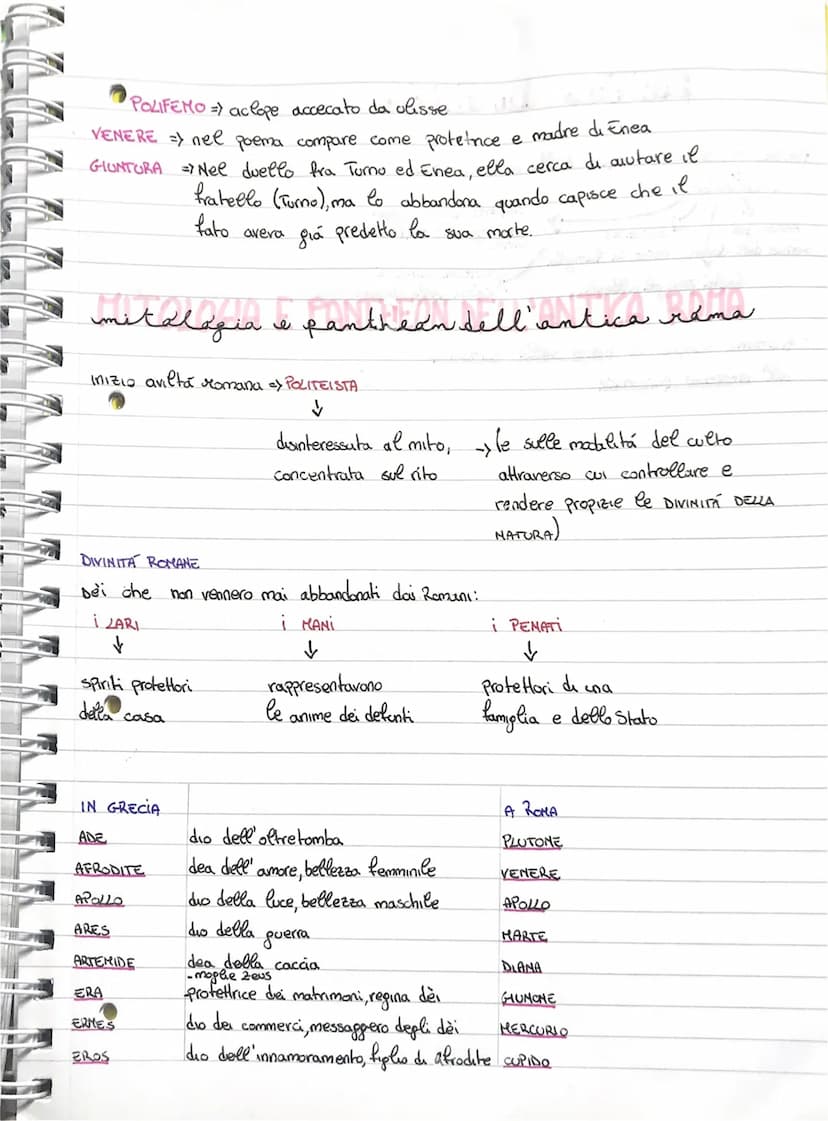 POLIFEMO => ciclope accecato da ulisse
VENERE => nel poema compare come protetrice e madre di Enea
GIUNTURA => Nel duello fra Turno ed Enea, ella cerca di aiutare il
fratello (Turno), ma lo abbandona quando capisce che il
fato aveva giá predetto la sua morte.
MITOLOGIA E PANTHEON DELL'ANTICA ROMA
mitologia e pantheon dell'antica roma
INIZIO civiltá romana => POLITEISTA
↓
disinteressata al mito, → (e sulle modalitá del culto
concentrata sul rito attraverso cui controllare e
rendere propizie le DIVINITÁ DELLA
NATURA)
DIVINITÁ ROMANE
Dèi che non vennero mai abbandonati dai Romani:
i LARI i MANI i PENATI
↓ ↓ ↓
spiriti protettori rappresentavano protettori di una
della casa le anime dei defunti famiglia e dello Stato
IN GRECIA A ROMA
ADE dio dell'oltretomba PLUTONE
AFRODITE dea dell'amore, bellezza femminile VENERE
APOLLO dio della luce, bellezza maschile APOLLO
ARES dio della guerra MARTE
ARTEMIDE dea della caccia DIANA
- moglie zeus
ERA protettrice dei matrimoni, regina dèi GIUNONE
ERMES dio dei commerci, messaggero degli dèi MERCURIO
EROS dio dell'innamoramento, figlio di afrodite CUPIDO